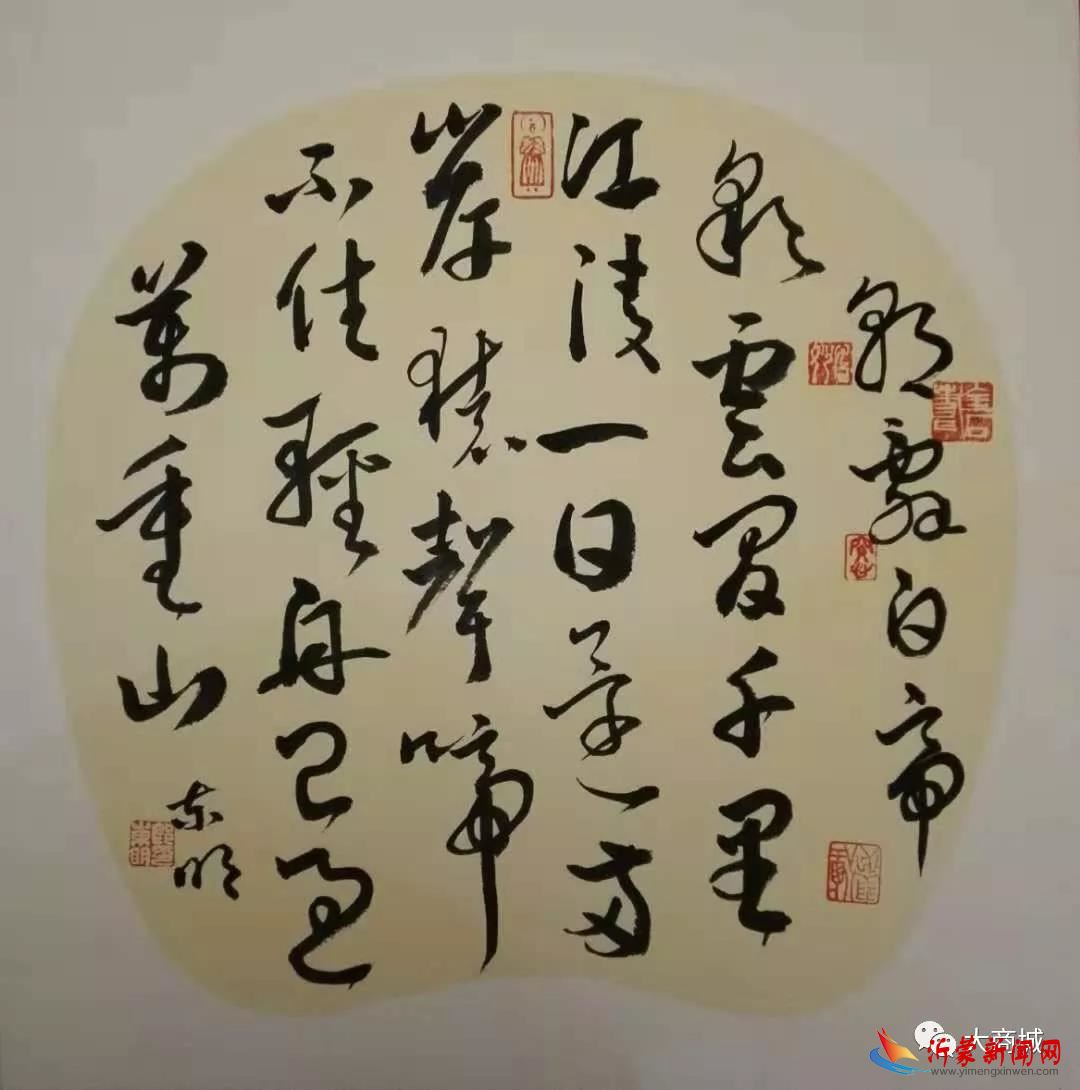 朝辭白帝
彩雲間千里
江陵一日還兩
岸猿聲啼
不住輕舟已過
萬重山
东明
大商城
沂蒙新闻网
www.yimengxinwen.com